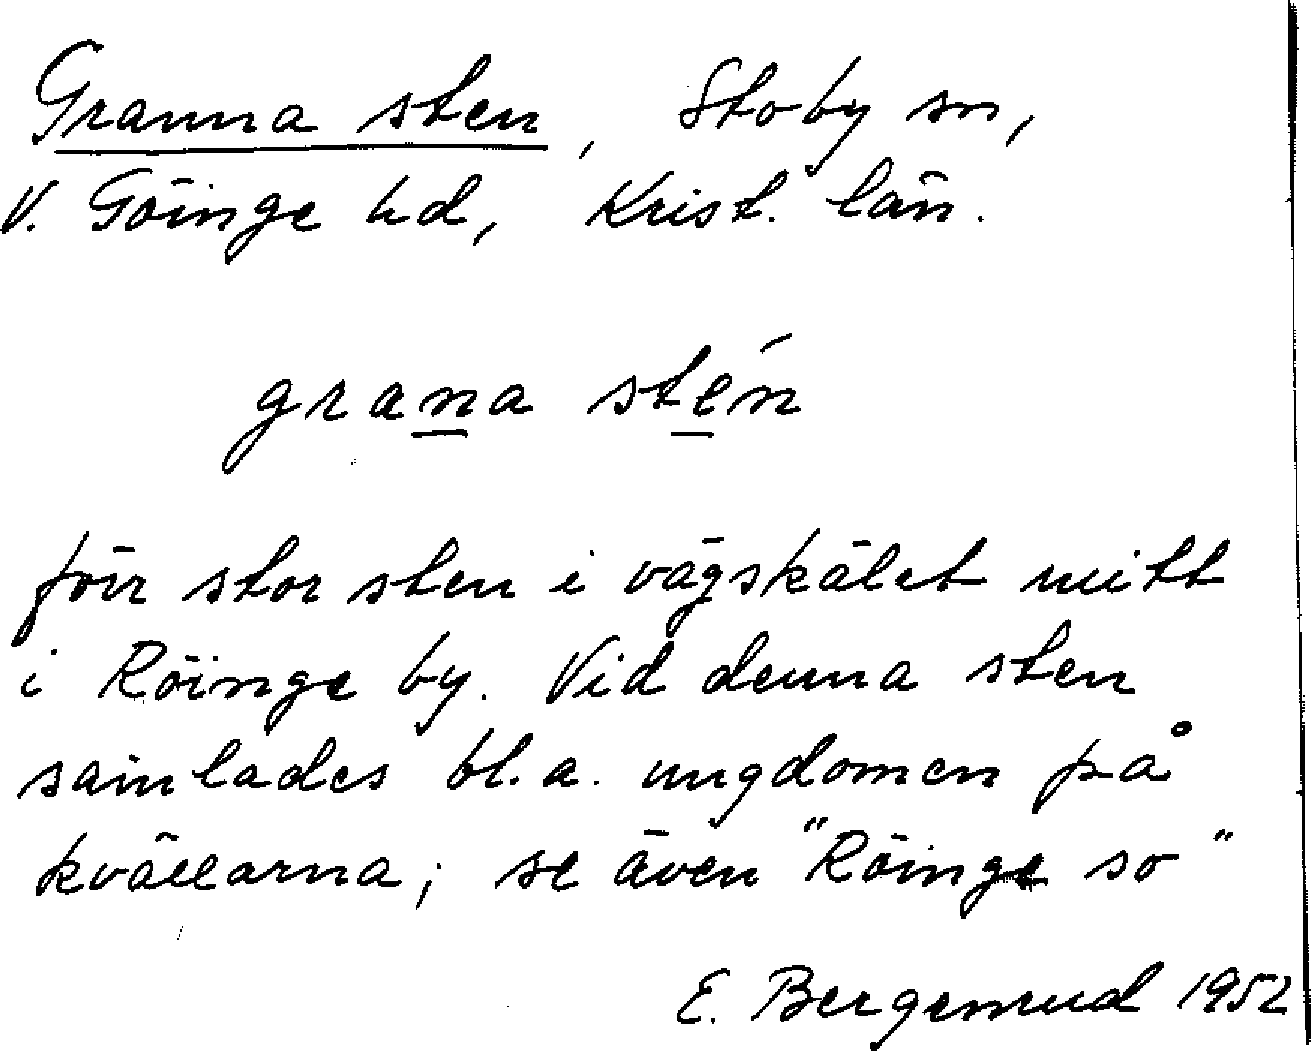 Granna sten, Stoby sn,
V. Göinge hd, Krist. län.
grana stén
för stor sten i vägskälet mitt
i Röinge by. Vid denna sten
samlades bl.a. ungdomen på
kvällarna; se även "Röinge so"
E. 1952